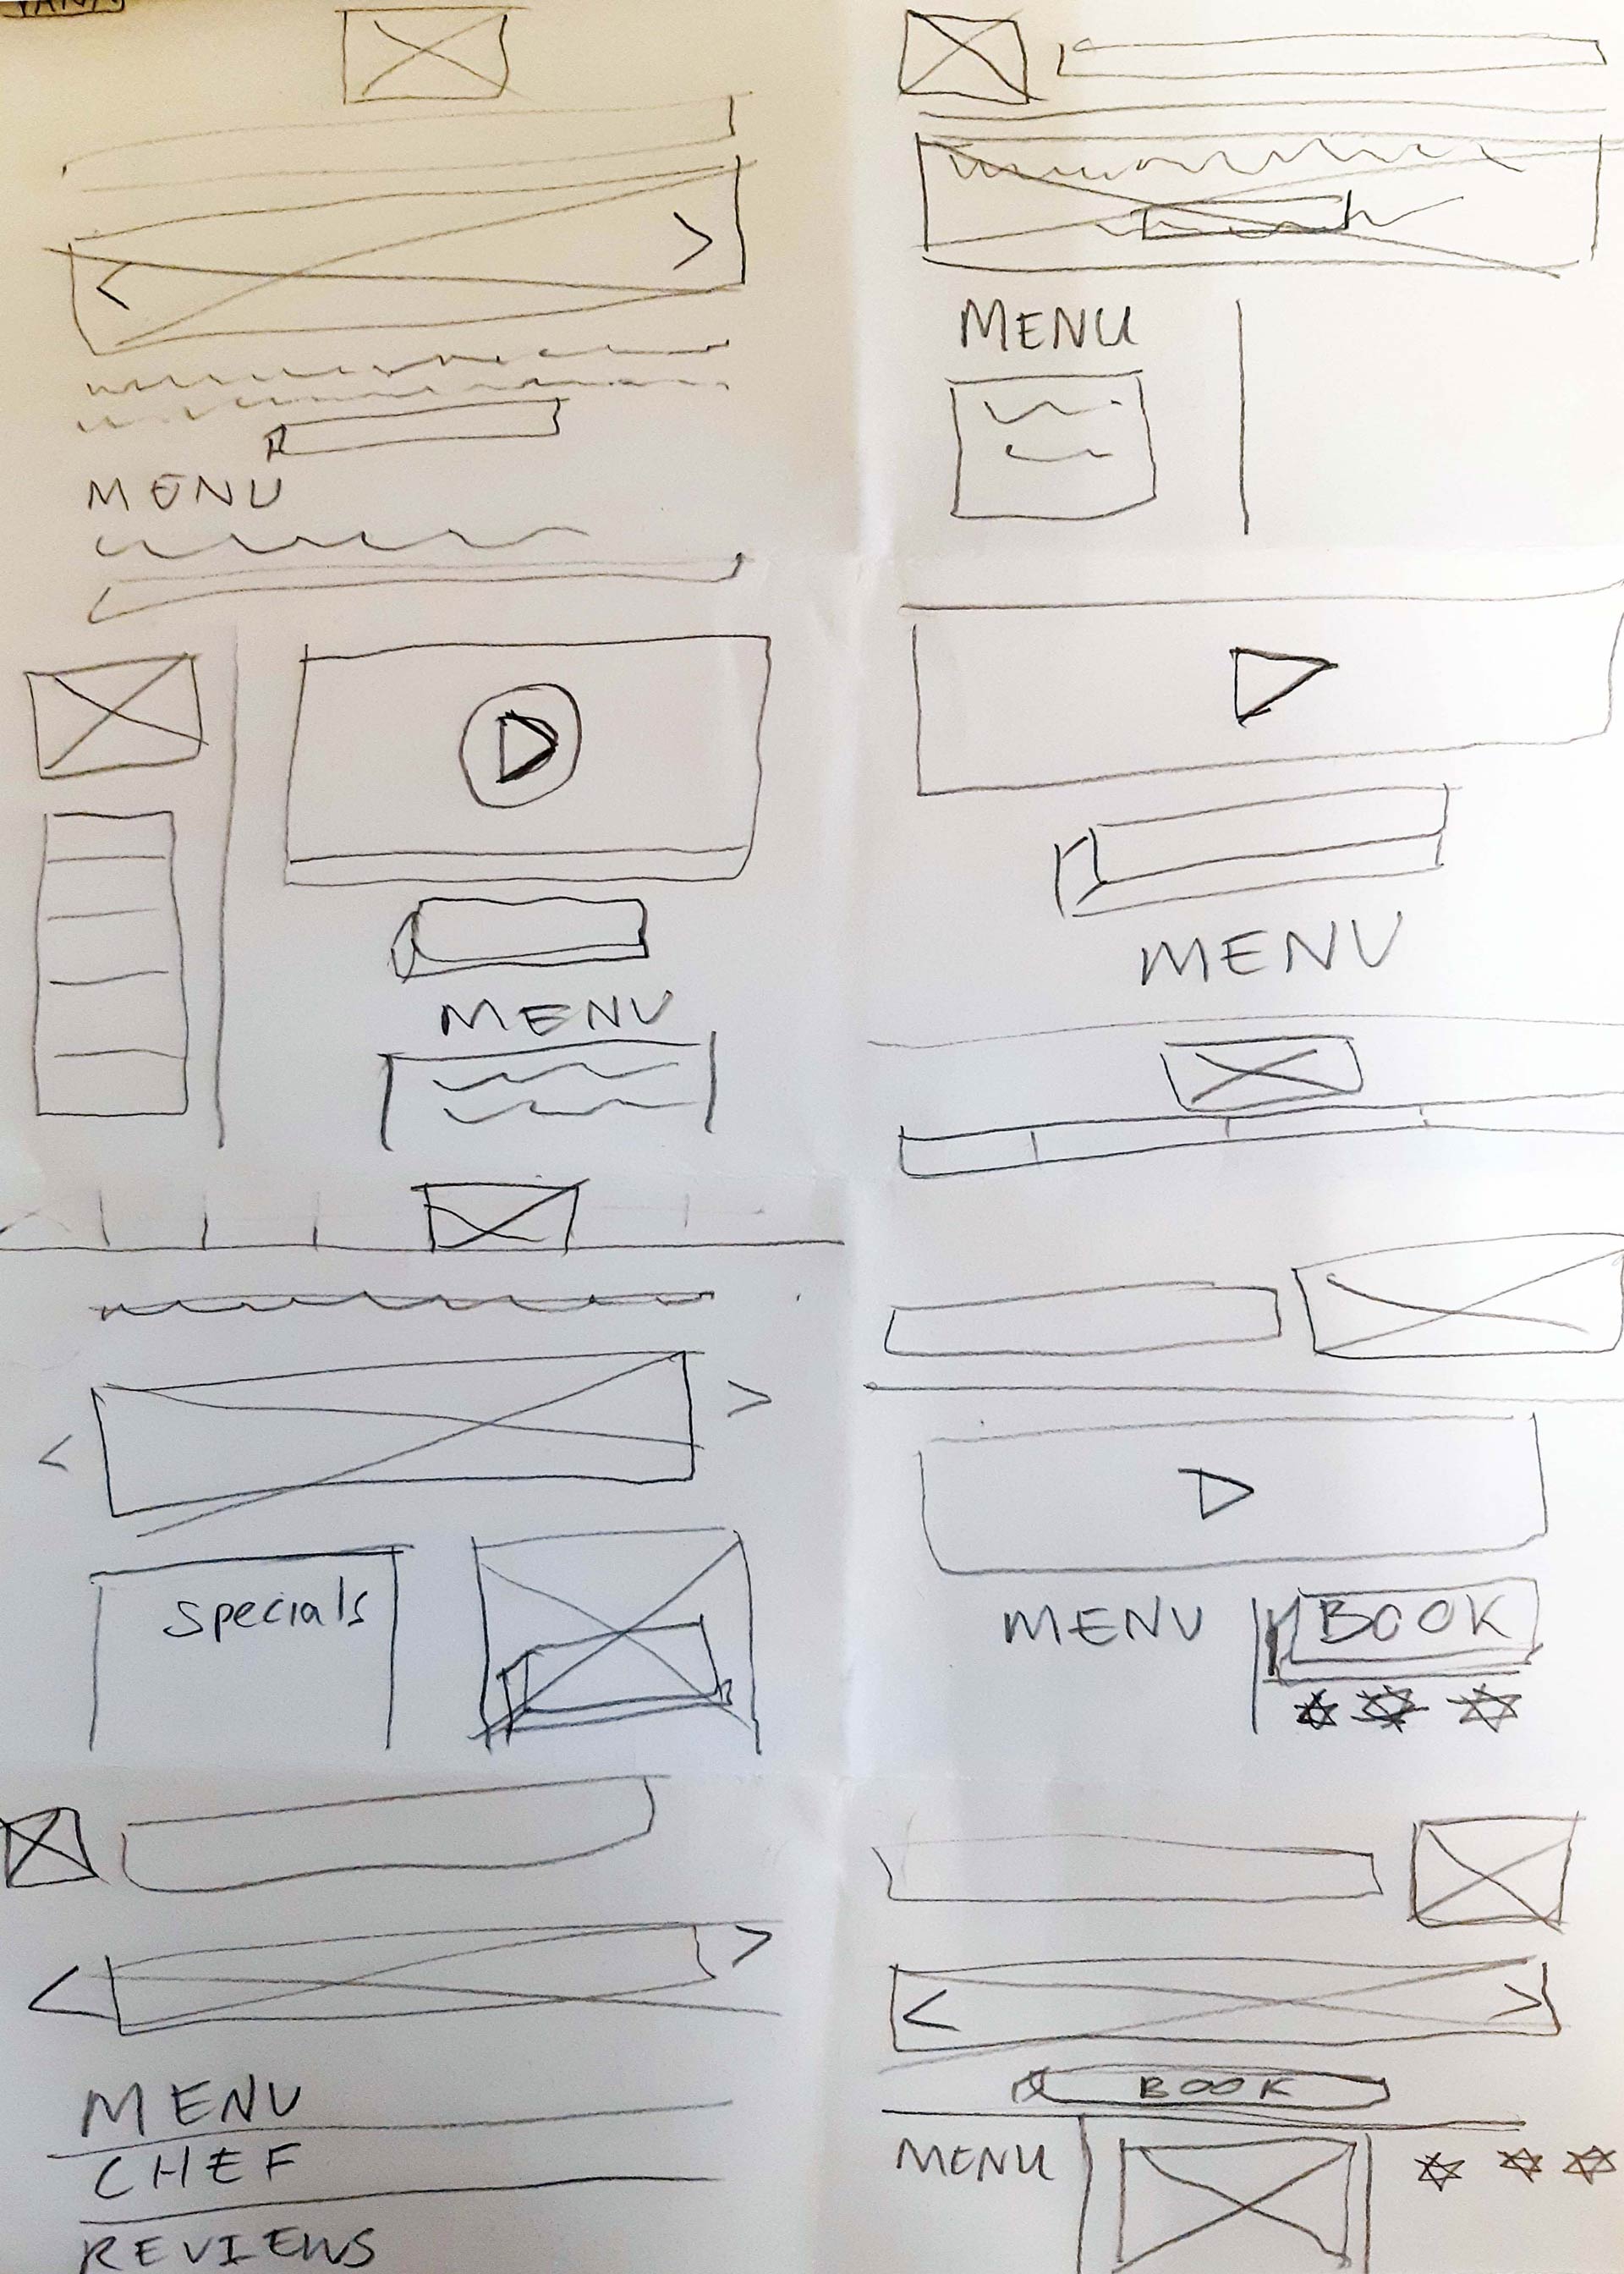 MENU
MENU
MENU
MENU
Specials
MENU
BOOK
MENU
CHEF
REVIEWS
BOOK
MENU